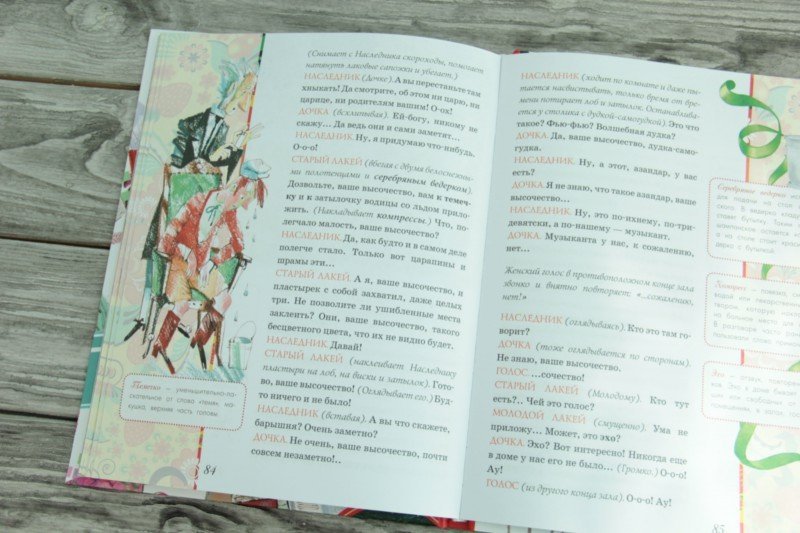 (Снимает с Наследника скороходы, помогает
натянуть лаковые сапожки и убегает.)
НАСЛЕДНИК (Дочке). А вы перестаньте там
хныкать! Да смотрите, об этом ни царю, ни
царице, ни родителям вашим! О-ох!
ДОЧКА (всхлипывая). Ей-богу, никому не
скажу... Да ведь они и сами заметят...
НАСЛЕДНИК. Ну, я придумаю что-нибудь.
О-о-о!
СТАРЫЙ ЛАКЕЙ (вбегая с двумя белоснежны-
ми полотенцами и серебряным ведерком).
Дозвольте, ваше высочество, вам к темеч-
ку и к затылочку водицы со льдом прило-
жить. (Накладывает компрессы.) Что, по-
легчало малость, ваше высочество?
НАСЛЕДНИК. Да, как будто и в самом деле
полегче стало. Только вот царапины и
шрамы эти...
СТАРЫЙ ЛАКЕЙ. А я, ваше высочество, и
пластырек с собой захватил, даже целых
три. Не позволите ли ушибленные места
заклеить? Они, ваше высочество, такого
бесцветного цвета, что их не видно будет.
НАСЛЕДНИК. Давай!
СТАРЫЙ ЛАКЕЙ (наклеивает Наследнику
пластыри на лоб, на виски и затылок). Гото-
во, ваше высочество! (Оглядывает его.) Буд-
то ничего и не было!
НАСЛЕДНИК (вставая). А вы что скажете,
барышня? Очень заметно?
ДОЧКА. Не очень, ваше высочество, почти
совсем незаметно!..
Темечко — уменьшительно-ла-
скательное от слова «темя», ма-
кушка, верхняя часть головы.
84
НАСЛЕДНИК (ходит по комнате и даже пы-
тается насвистывать, только время от вре-
мени потирает лоб и затылок. Останавлива-
ется у столика с дудкой-самогудкой). Это что
такое? Фью-фью? Волшебная дудка?
ДОЧКА. Да, ваше высочество, дудка-само-
гудка.
НАСЛЕДНИК. Ну, а этот, азандар, у вас
есть?
ДОЧКА. Я не знаю, что такое азандар, ваше
высочество...
НАСЛЕДНИК. Ну, это по-ихнему, по-три-
девятски, а по-нашему — музыкант.
ДОЧКА. Музыканта у нас, к сожалению,
нет...
Женский голос в противоположном конце зала
звонко и внятно повторяет: «...сожалению,
нет!»
НАСЛЕДНИК (оглядываясь). Кто это там го-
ворит?
ДОЧКА (тоже оглядывается по сторонам).
Не знаю, ваше высочество.
ГОЛОС. ...сочество!
СТАРЫЙ ЛАКЕЙ (Молодому). Кто тут
есть?.. Чей это голос?
МОЛОДОЙ ЛАКЕЙ (смущенно). Ума не
приложу... Может, это эхо?
ДОЧКА. Эхо? Вот интересно! Никогда еще
в доме у нас его не было... (Громко.) О-о-о!
Ау!
ГОЛОС (из другого конца зала). О-о-о! Ау!
Серебряное ведерко
для подачи на стол
ского. В ведерко
ставят бутылку. Таким
шампанское остается
а на столе стоит
дерко с бутылкой.
Компресс — повязка,
водой или лекарственным
твором, которую
на больное место для
В разговорной части
пользовали слово примочка.
Эхо — отзвук,
ков. Эхо в доме бывает
или свободных
помещениях, в залах,
85